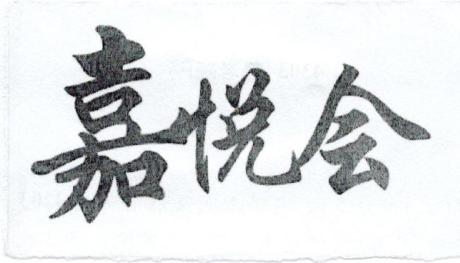 嘉悦会